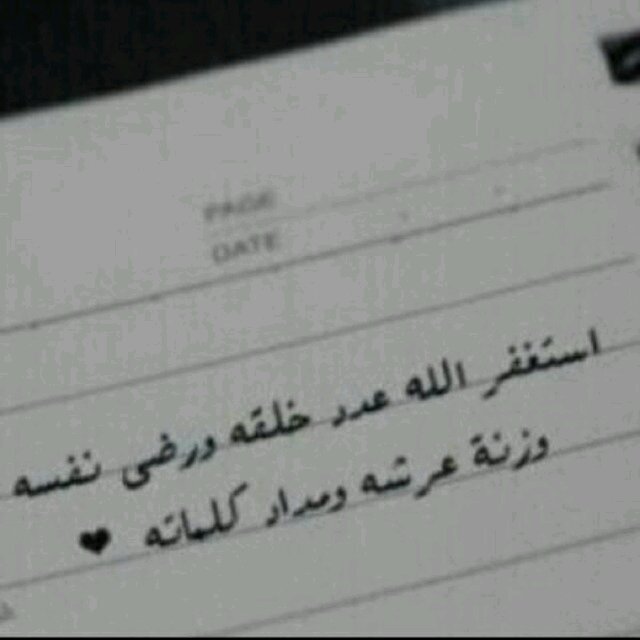 PAGE
DATE
استغفر الله عدد خلقه ورضى نفسه
وزنة عرشه ومداد كلماته ❤